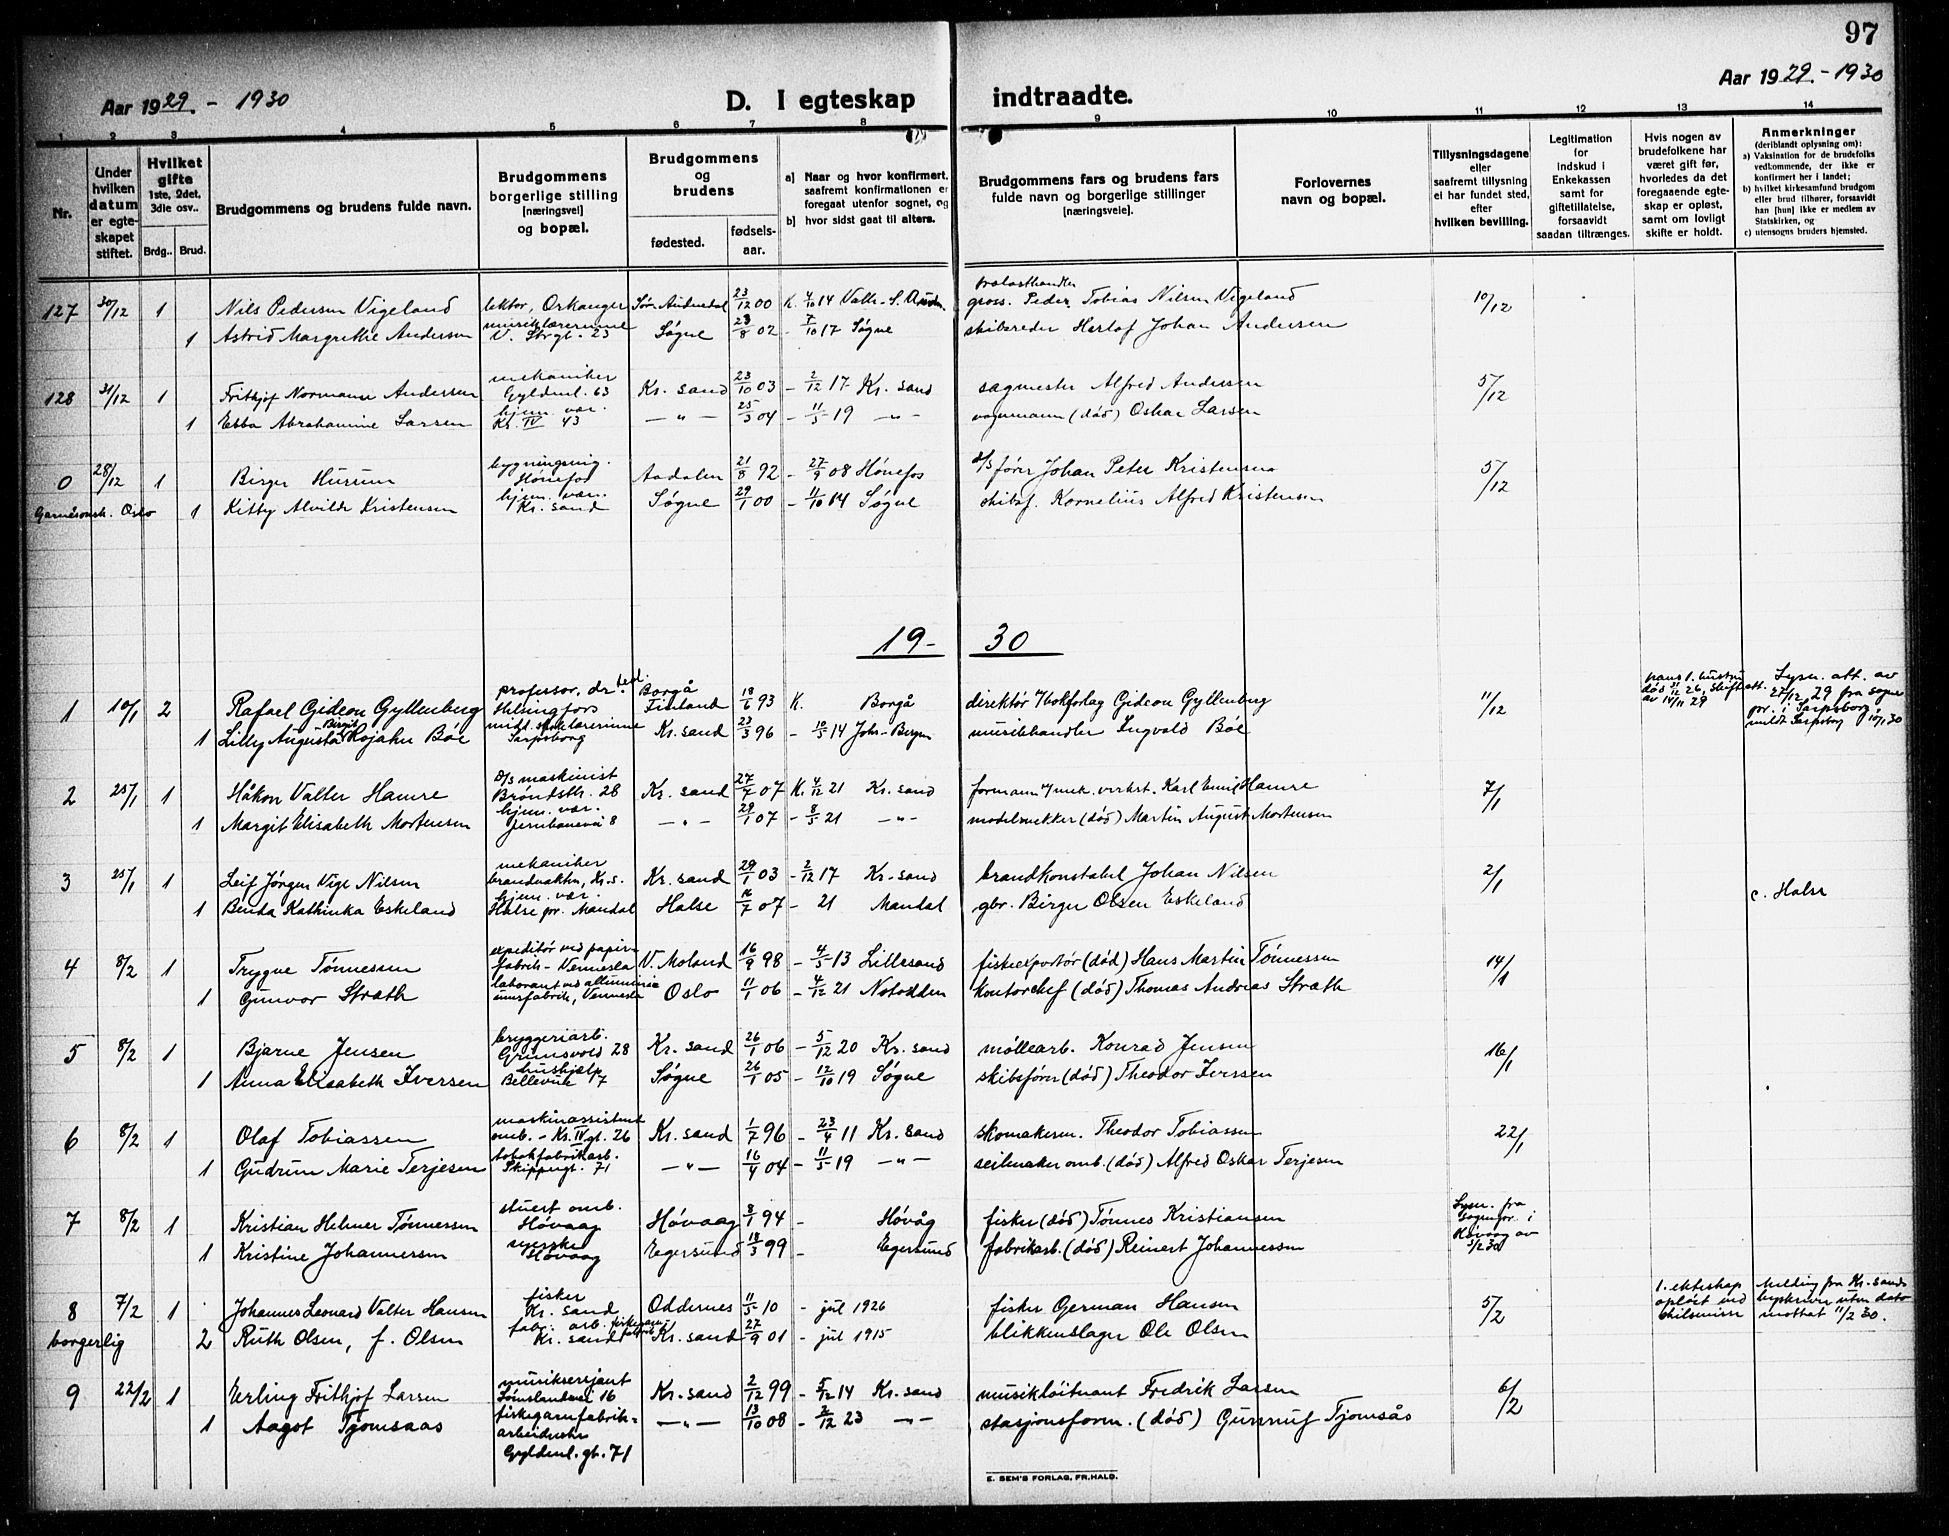 97
Aar 1929 - 1930 D. I egteskap indtraadte. Aar 1929. - 1930
1 2 3 4 5 6 7 8 9 10 11 12 13 14
Nr.
Under hvilken datum er egte- skapet stiftet.
Hvilket gifte 1ste, 2det, 3die osv..
Brdg.. Brud.
Brudgommens og brudens fulde navn.
Brudgommens borgerlige stilling [næringsvei] og bopæl.
Brudgommens og brudens
fødested. fødsels- aar.
a) Naar og hvor konfirmert, saafremt konfirmationen er foregaat utenfor sognet, og
b) hvor sidst gaat til alters.
Brudgommens fars og brudens fars fulde navn og borgerlige stillinger [næringsveie].
Forlovernes navn og bopæl.
Tillysningsdagene eller saafremt tillysning ei har fundet sted, efter hvilken bevilling.
Legitimation for indskud i Enkekassen samt for giftetillatelse, forsaavidt saadan tiltrænges.
Hvis nogen av brudefolkene har været gift før, hvorledes da det foregaaende egte- skap er opløst, samt om lovligt skifte er holdt.
Anmerkninger (deriblandt oplysning om):
a) Vaksination for de brudefolks vedkommende, der ikke er konfirmert her i landet;
b) hvilket kirkesamfund brudgom eller brud tilhører, forsaavidt han [hun] ikke er medlem av Statskirken, og
c) utensogns bruders hjemsted.
127 30/12 1 Nils Pedersen Vigeland lektor, Orkanger Sør-Audnedal 23/12 00 K. 4/10 14 Valle-S. Audn. trælasthandler gross. Peder Tobias Nilsen Vigeland 10/12
1 Astrid Margrethe Andersen musiklærerinne V. Strgt. 23 Søgne 23/8 02 - 7/10 17 Søgne skibsreder Herlof Johan Andersen
128 31/12 1 Frithjof Normann Andersen mekaniker Gyldenl. 63 Kr. sand 23/10 03 - 2/12 17 Kr. sand sagmester Alfred Andersen 5/12
1 Ebba Abrahamine Larsen hjem. vær. Kr. IV 43 — " — 25/3 04 - 11/5 19 - " - vognmann (død) Oskar Larsen
0 28/12 1 Birger Hurum bygningsing. Hønefos Aadalen 21/8 92 - 27/9 08 Hønefos d/s fører Johan Peter Kristensen 5/12
Garnisonsk. Oslo 1 Kitty Alvilde Kristensen hjem. vær. Kr. sand Søgne 29/1 00 - 11/10 14 Søgne skibsf. Kornelius Alfred Kristensen
19- 30
1 10/1 2 Rafael Gideon Gyllenberg professor, dr. teol. Helsingfors Borgå Finland 18/6 93 K. Borgå direktør v/bokforlag Gideon Gyllenberg 11/12 hans 1. hustru død 31/12 26, skifteatt. av 14/11 29 Lysn. att. av 27/12 29 fra sogne pr. i Sarpsborg mildt Sarpsborg 10/1 30
1 Lilly Augusta Birgit Rojahn Bøe midd. skolelærerinne Sarpsborg Kr. sand 23/3 96 - 10/5 14 Johs- Bergen musikhandler Ingvald Bøe
2 25/1 1 Håkon Valter Hamre D/s maskinist Brøndstr. 28 Kr. sand 27/7 07 K. 4/12 21 Kr. sand formann v/mek. verkst. Karl Emil Hamre 7/1
1 Margit Elisabeth Mortensen hjem. vær. Jernbanevei 8 — " — 29/1 07 - 8/5 21 — " — modelsnekker (død) Martin August Mortensen
3 25/1 1 Leif Jørgen Vige Nilsen mekaniker brandvakten, Kr. s. Kr. sand 29/1 03 - 2/12 17 Kr. sand brandkonstabel Johan Nilsen 2/1
1 Benda Kathinka Eskeland hjem. vær. Halse pr. Mandal Halse 16/7 07 - 21 Mandal gbr. Birger Olsen Eskeland c. Halse
4 8/2 1 Trygve Tønnessen expeditør ved papir- fabrik - Vennesla V. Moland 16/9 98 - 4/5 13 Lillesand fiskeexportør (død) Hans Martin Tønnessen 14/1
1 Gunvor Strath laborant ved alluminium-fabrik, Vennesla Oslo 11/1 06 - 4/12 21 Notodden kontorchef (død) Thomas Andreas Strath
5 8/2 1 Bjarne Jensen bryggeriarb. Grimsvold 28 Kr. sand 26/1 06 - 5/12 20 Kr. sand møllearb. Konrad Jensen 16/1
1 Anna Elisabeth Iversen hushjelp Bellevue 17 Søgne 26/1 05 - 12/10 19 Søgne skibsfører (død) Theodor Iversen
6 8/2 1 Olaf Tobiassen maskinassistent omb. - Kr. IV gt. 26 Kr. sand 1/7 96 - 23/4 11 Kr. sand skomakerm. Theodor Tobiassen 22/1
1 Gudrun Marie Terjesen tobakfabrikarb. Skippergt. 71 — " — 16/4 04 - 11/5 19 — " — seilmaker omb. (død) Alfred Oskar Terjesen
7 8/2 1 Kristian Helmer Tønnessen stuert omb. Høvaag Høvaag 8/1 94 - Høvåg fisker (død) Tønnes Kristiansen Lysn. fra sognepr. i Høvaag av 3/2 30
1 Kristine Johannessen syerske Høvaag Egersund 18/3 99 - Egersund fabrikarb. (død) Reinert Johannessen
8 7/2 1 Johannes Leonard Valter Hansen fisker Kr. sand Oddernes 11/5 10 - jul 1926 fisker German Hansen 5/2 1. ekteskap opløst ved skilsmisse Melding fra Kr. sands byskriver uten dato mottat 11/2 30.
borgerlig 2 Ruth Olsen, f. Olsen fabr. arb. Kr. sand Kr. sand 27/9 01 - jul 1915 blikkenslager Ole Olsen
9 22/2 1 Erling Frithjof Larsen musiksersjant Tømslandsvei 16 Kr. sand 2/12 99 - 5/12 14 Kr. sand musikløitnant Fredrik Larsen 6/2
1 Aagot Tjomsaas fiskegarnfabrik- arbeiderske Gyldenl. gt. 71 — " — 13/10 08 - 2/12 23 — " — stasjonsform. (død) Gunnuf Tjomsås
E. SEM'S FORLAG, FR.HALD.